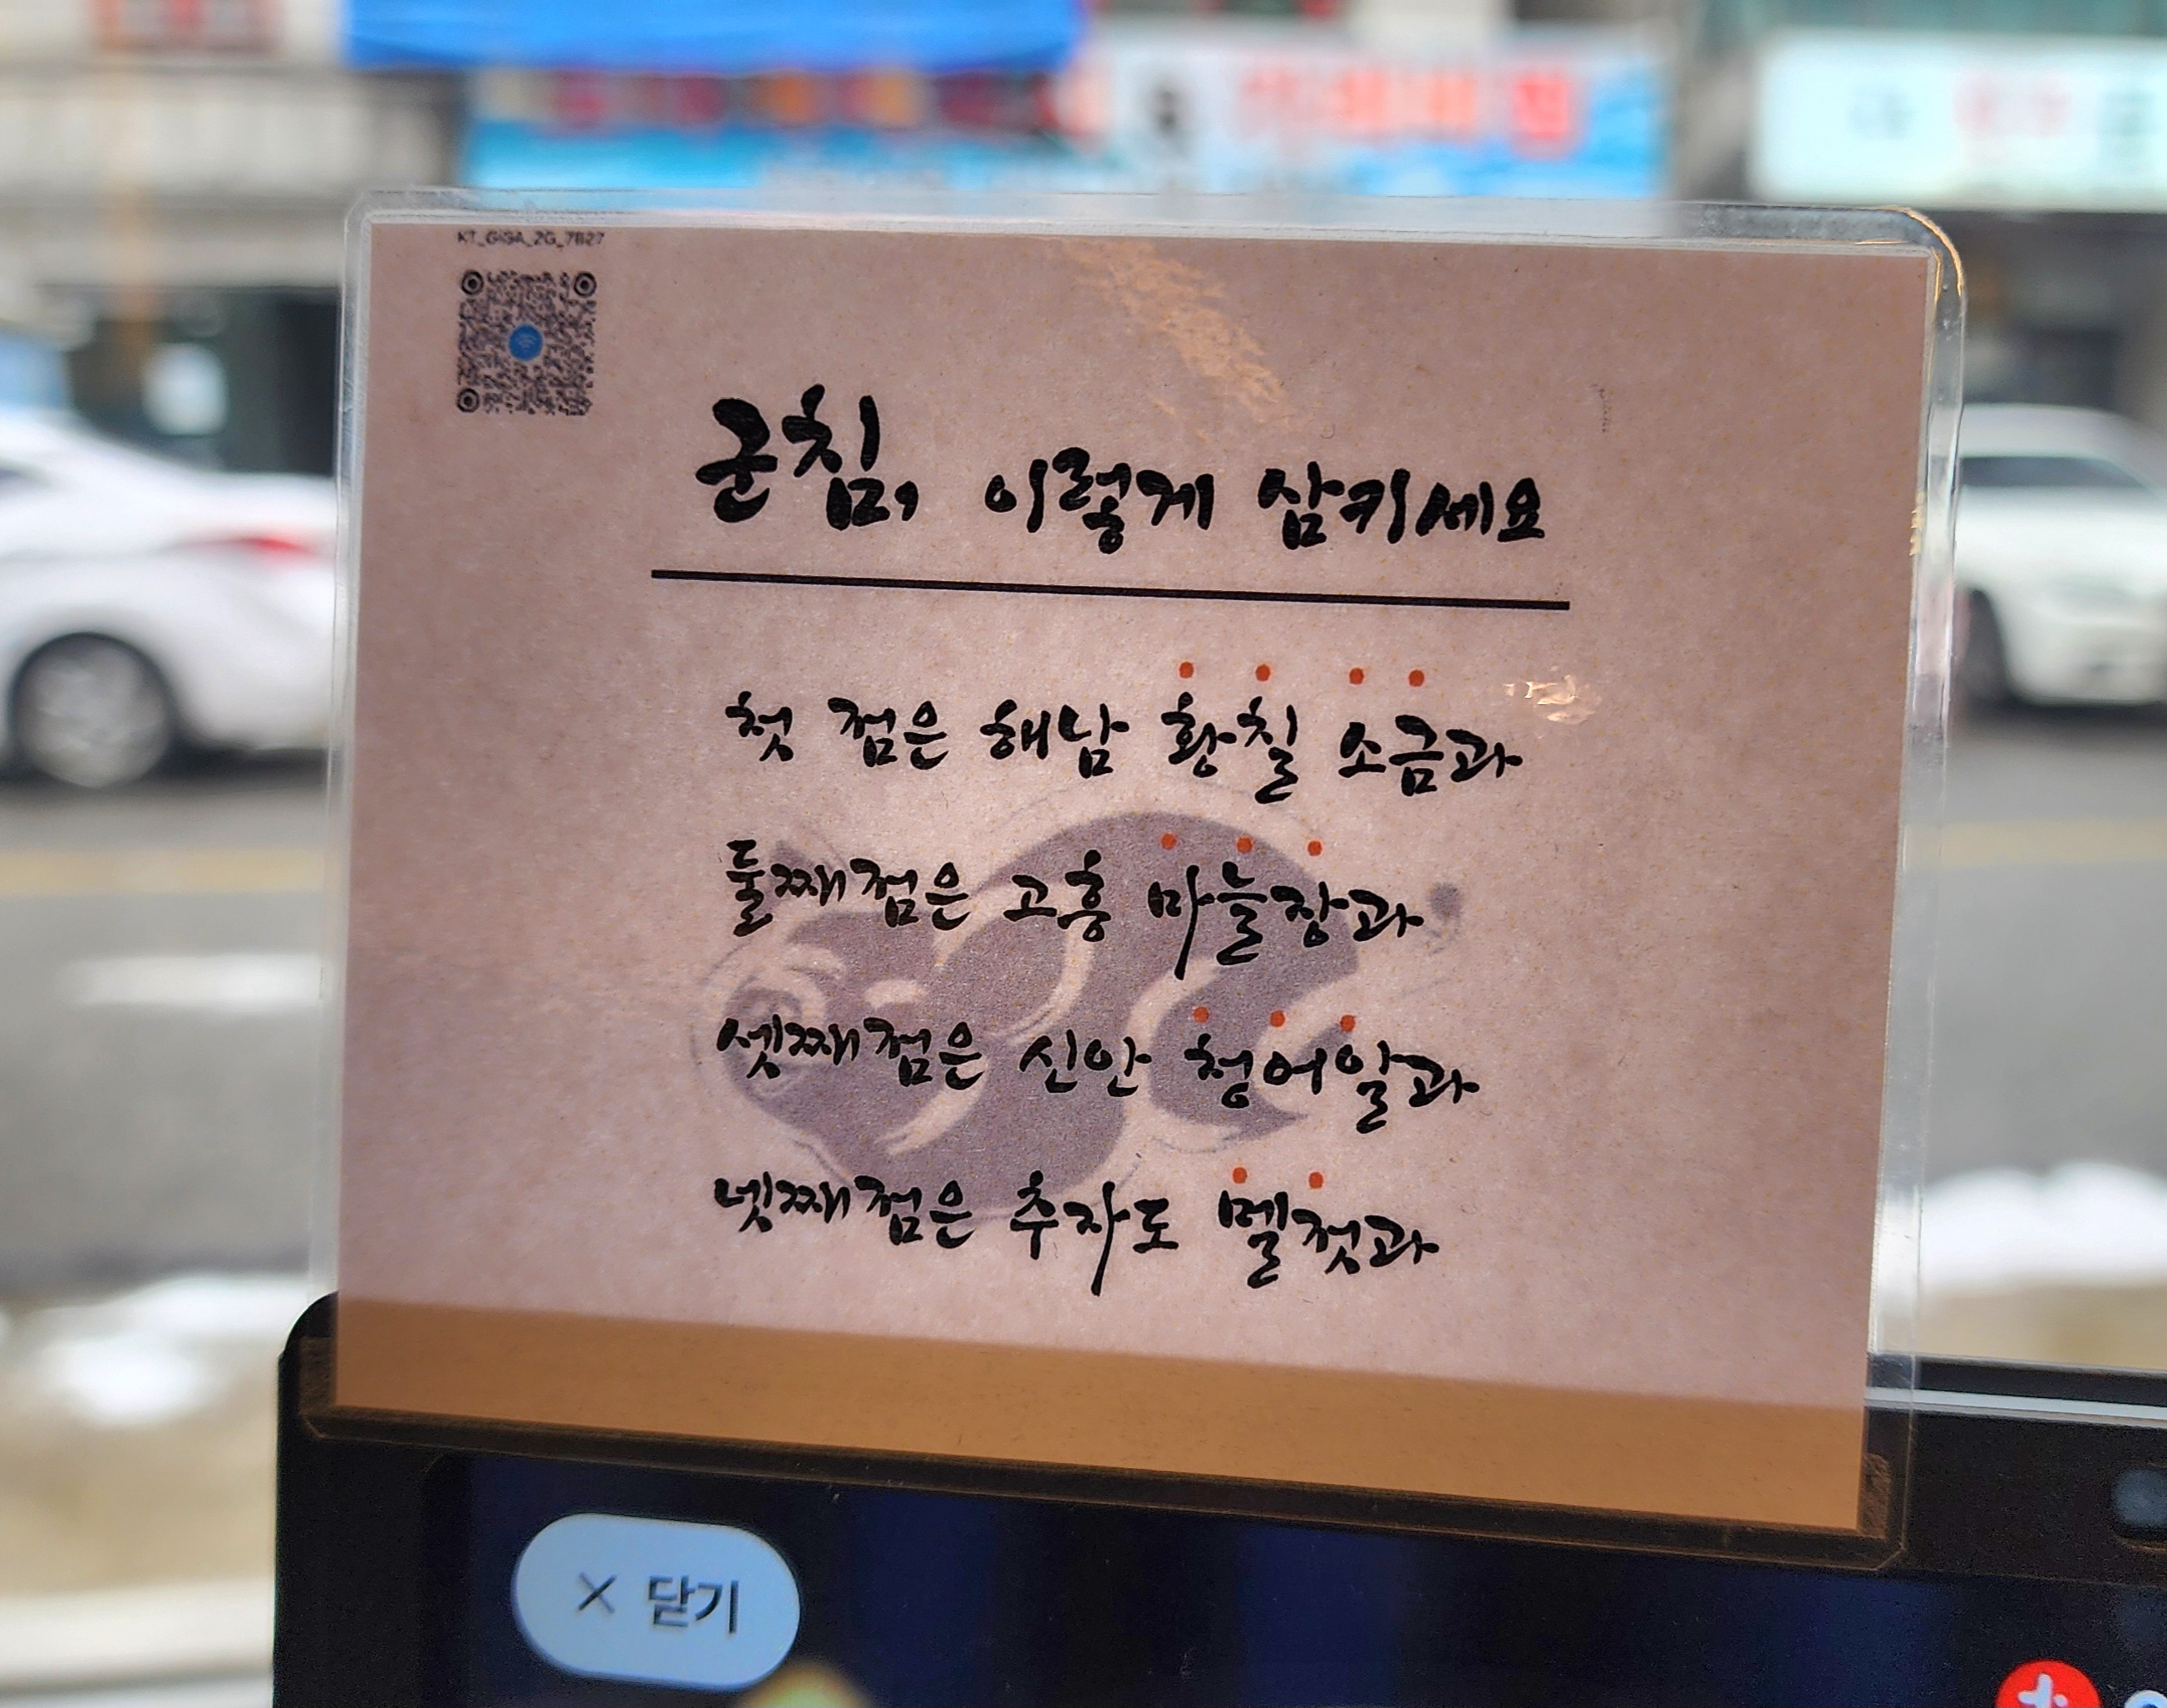 KT_GiGA_2G_7B27
군침, 이렇게 삼키세요
첫 점은 해남 황칠 소금과
둘째점은 고흥 마늘장과
셋째점은 신안 청어알과
넷째점은 추자도 멜젓과
× 닫기